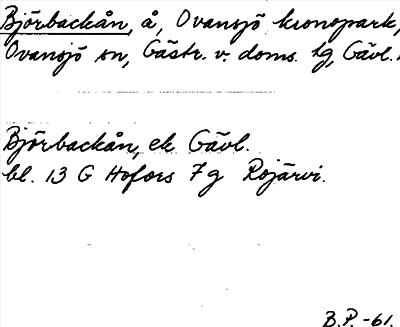 Björbackån, å, Ovansjö kronopark,
Ovansjö sn, Gästr. v. doms. lg, Gävl.
Björbackån, ek Gävl.
bl. 13 G Hofors 7g Rojärvi.
B.P. -61.